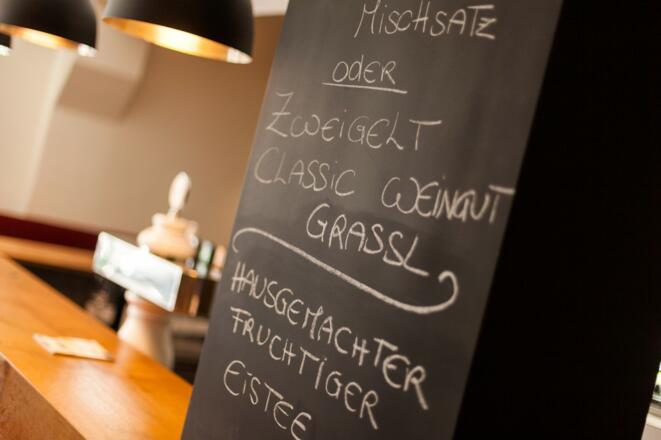 MiSCHSATZ
oder
ZWEiGELT
CLASSiC WEiNGUT
GRASSL
HAUSGEMACHTER
FRUCHTiGER
EiSTEE